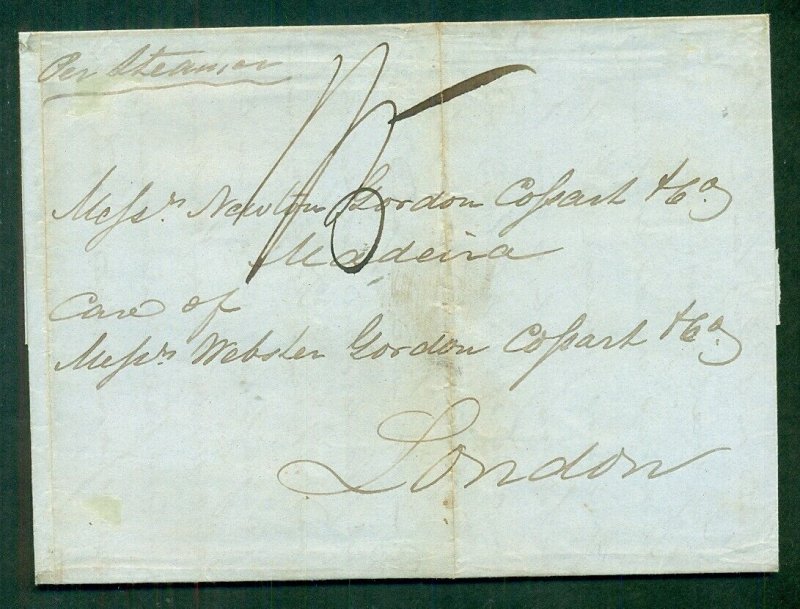 Per Steamer
1/5
Messrs. Newton Gordon Cossart & Co
Madeira
Care of
Messrs. Webster Gordon Cossart & Co
London